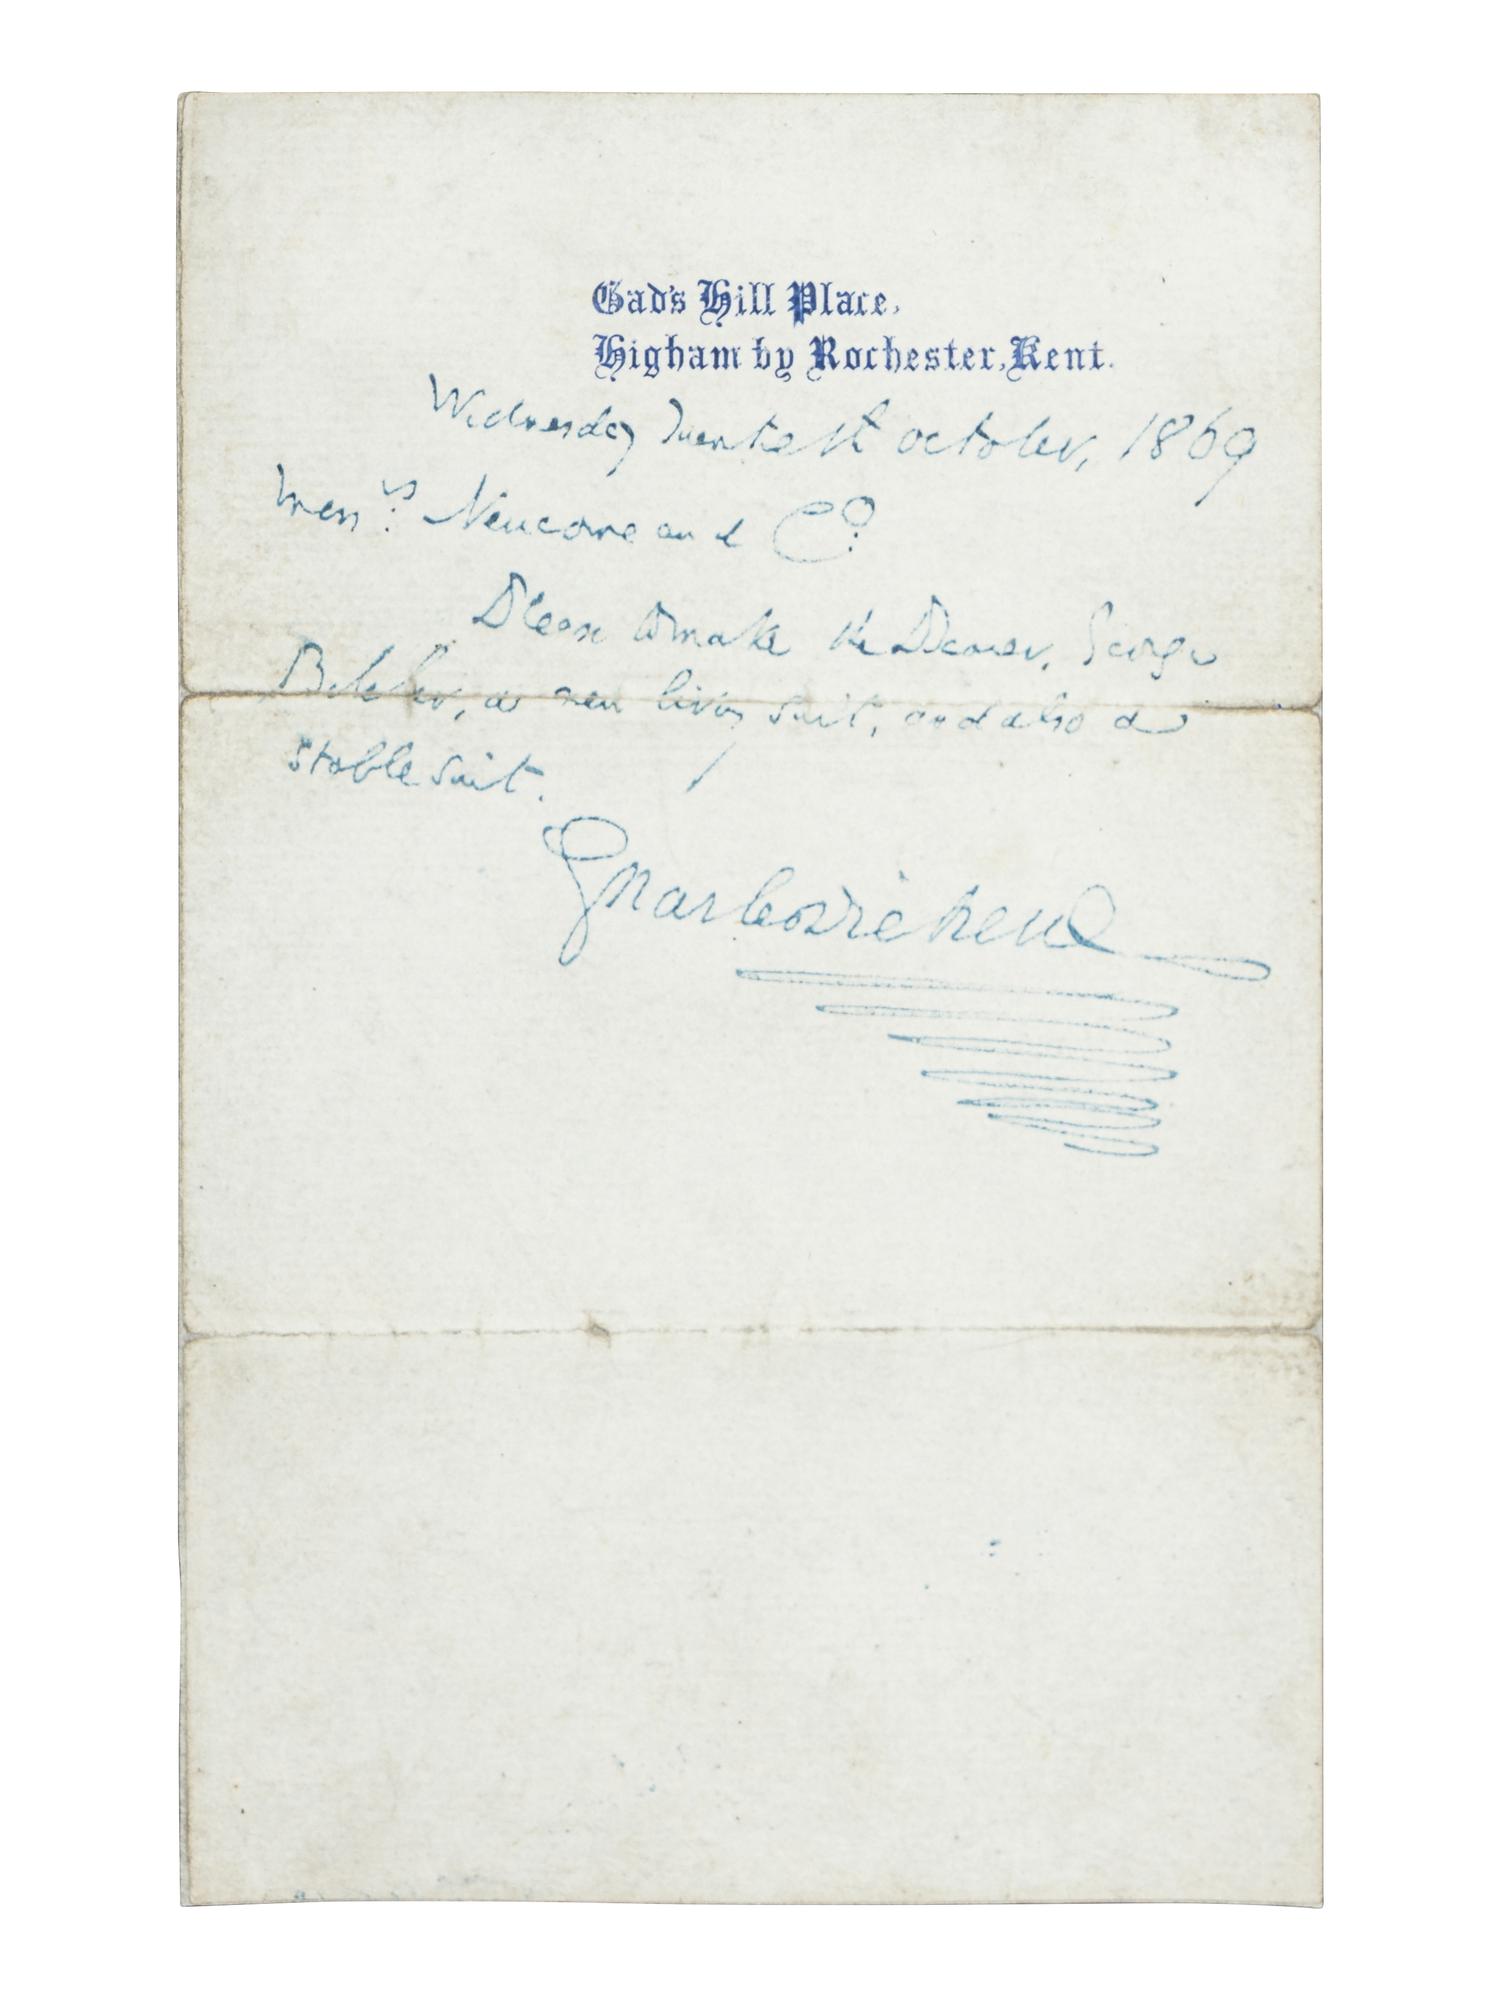 Gad's Hill Place,
Higham by Rochester, Kent.
Wednesday Twentieth October, 1869
Mess.rs Newcome and Co.
Please to make the Bearer, George
Butler, a new livery suit, and also a
stable suit.
Charles Dickens